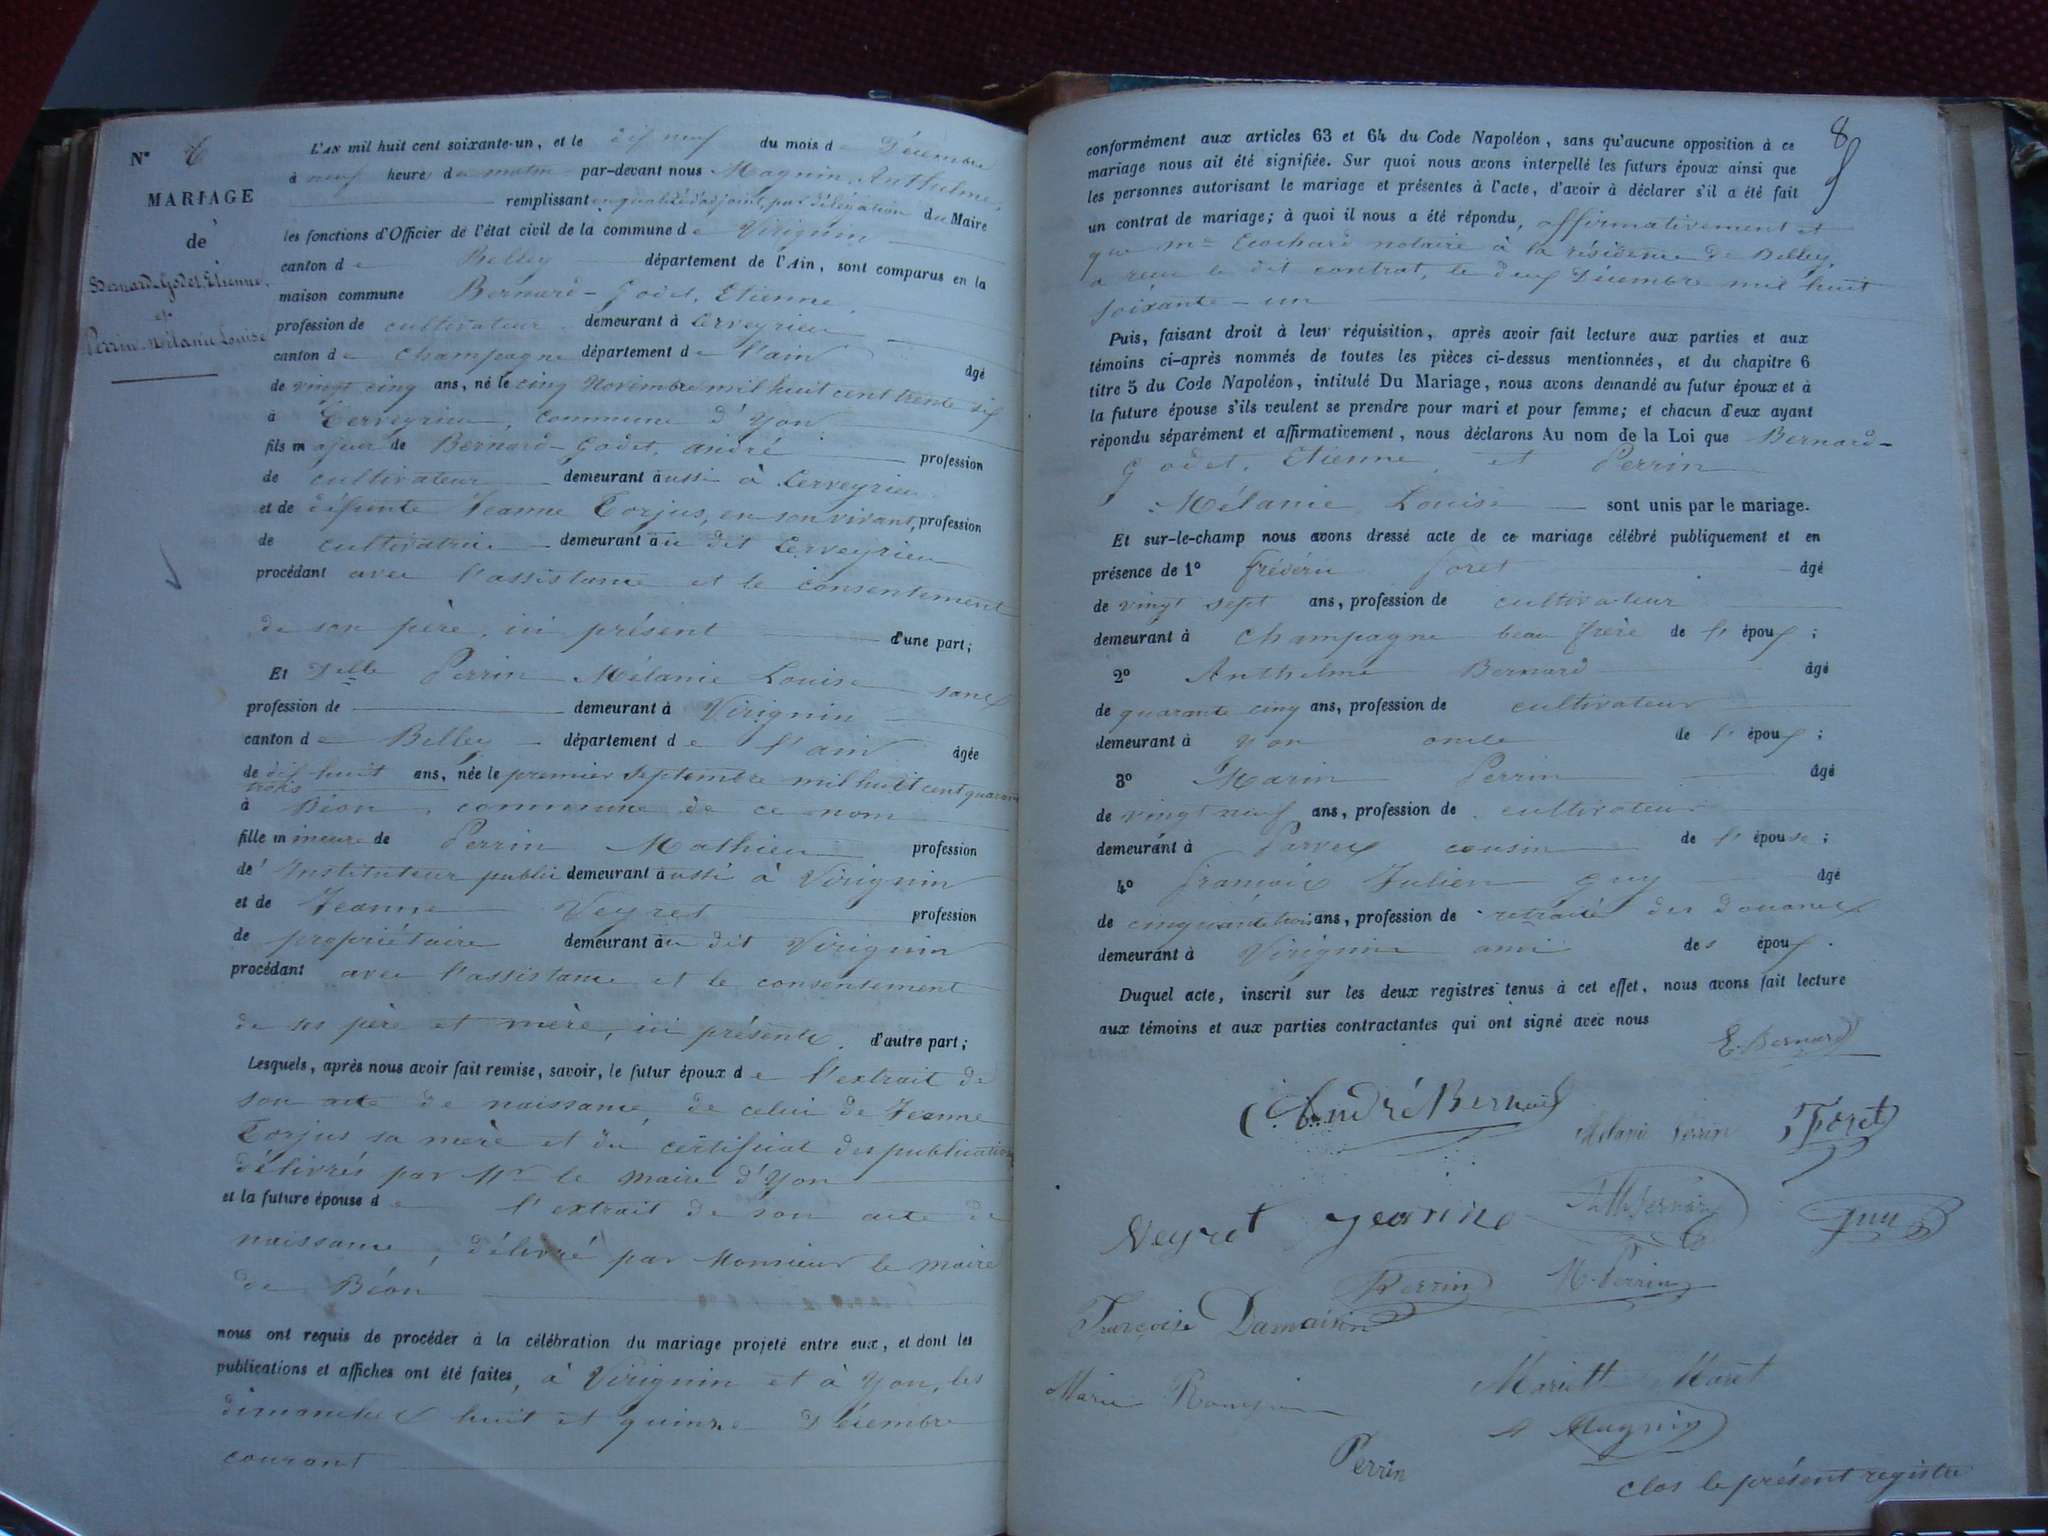 N° 6
MARIAGE
de
Bernard-Godet, Etienne,
et
Perrin Mélanie Louise
L'AN mil huit cent soixante-un, et le dix neuf du mois de Décembre
à neuf heures du matin par-devant nous Magnin, Anthelme,
remplissant en qualité d'adjoint, par délégation du Maire
les fonctions d'Officier de l'état civil de la commune de Virignin
canton de Belley département de l'Ain, sont comparus en la
maison commune Bernard-Godet, Etienne
profession de cultivateur demeurant à Cerveyrieu
canton de Champagne département de l'ain âgé
de vingt cinq ans, né le cinq Novembre mil huit cent trente six
à Cerveyrieu, commune d'Yon
fils majeur de Bernard-Godet, andré profession
de cultivateur demeurant aussi à Cerveyrieu
et de défunte Jeanne Torjus, en son vivant, profession
de cultivatrice demeurant au dit Cerveyrieu
procédant avec l'assistance et le consentement
de son père, ici présent d'une part;
Et Delle Perrin Mélanie Louise sans
profession de demeurant à Virignin
canton de Belley département de l'ain âgée
de dix huit ans, née le premier Septembre mil huit cent quarante
trois
à Béon, commune de ce nom
fille mineure de Perrin Mathieu profession
de Instituteur public demeurant aussi à Virignin
et de Jeanne Veyret profession
de propriétaire demeurant au dit Virignin
procédant avec l'assistance et le consentement
de ses père et mère, ici présents. d'autre part;
Lesquels, après nous avoir fait remise, savoir, le futur époux de l'extrait de
son acte de naissance, de celui de Jeanne
Torjus sa mère et du certificat des publications
délivrés par Mr le maire d'Yon
et la future épouse de l'extrait de son acte de
naissance, délivré par Monsieur le maire
de Béon
nous ont requis de procéder à la célébration du mariage projeté entre eux, et dont les
publications et affiches ont été faites, à Virignin et à Yon, les
dimanches huit et quinze Décembre
courant
8
conformément aux articles 63 et 64 du Code Napoléon, sans qu'aucune opposition à ce
mariage nous ait été signifiée. Sur quoi nous avons interpellé les futurs époux ainsi que
les personnes autorisant le mariage et présentes à l'acte, d'avoir à déclarer s'il a été fait
un contrat de mariage; à quoi il nous a été répondu, affirmativement et
que me Cochard notaire à la résidence de Belley,
a reçu le dit contrat, le deux Décembre mil huit
soixante-un
Puis, faisant droit à leur réquisition, après avoir fait lecture aux parties et aux
témoins ci-après nommés de toutes les pièces ci-dessus mentionnées, et du chapitre 6
titre 5 du Code Napoléon, intitulé Du Mariage, nous avons demandé au futur époux et à
la future épouse s'ils veulent se prendre pour mari et pour femme; et chacun d'eux ayant
répondu séparément et affirmativement, nous déclarons Au nom de la Loi que Bernard-
Godet, Etienne et Perrin
Mélanie Louise sont unis par le mariage.
Et sur-le-champ nous avons dressé acte de ce mariage célébré publiquement et en
présence de 1° Frédéric Foret âgé
de vingt sept ans, profession de cultivateur
demeurant à Champagne beau frère de l'époux;
2° Anthelme Bernard âgé
de quarante cinq ans, profession de cultivateur
demeurant à Yon oncle de l'époux;
3° Marin Perrin âgé
de vingt neuf ans, profession de cultivateur
demeurant à Parves cousin de l'épouse;
4° François Julien Guy âgé
de cinquante trois ans, profession de retraité des douanes
demeurant à Virignin ami des époux.
Duquel acte, inscrit sur les deux registres tenus à cet effet, nous avons fait lecture
aux témoins et aux parties contractantes qui ont signé avec nous
E. Bernard
André Bernard
Mélanie Perrin
Foret
Veyret Jeanne
Ath Bernard
Guy
Perrin
M. Perrin
Françoise Damaisin
Marie
Mariette Maret
A Magnin
Perrin
clos le présent registre